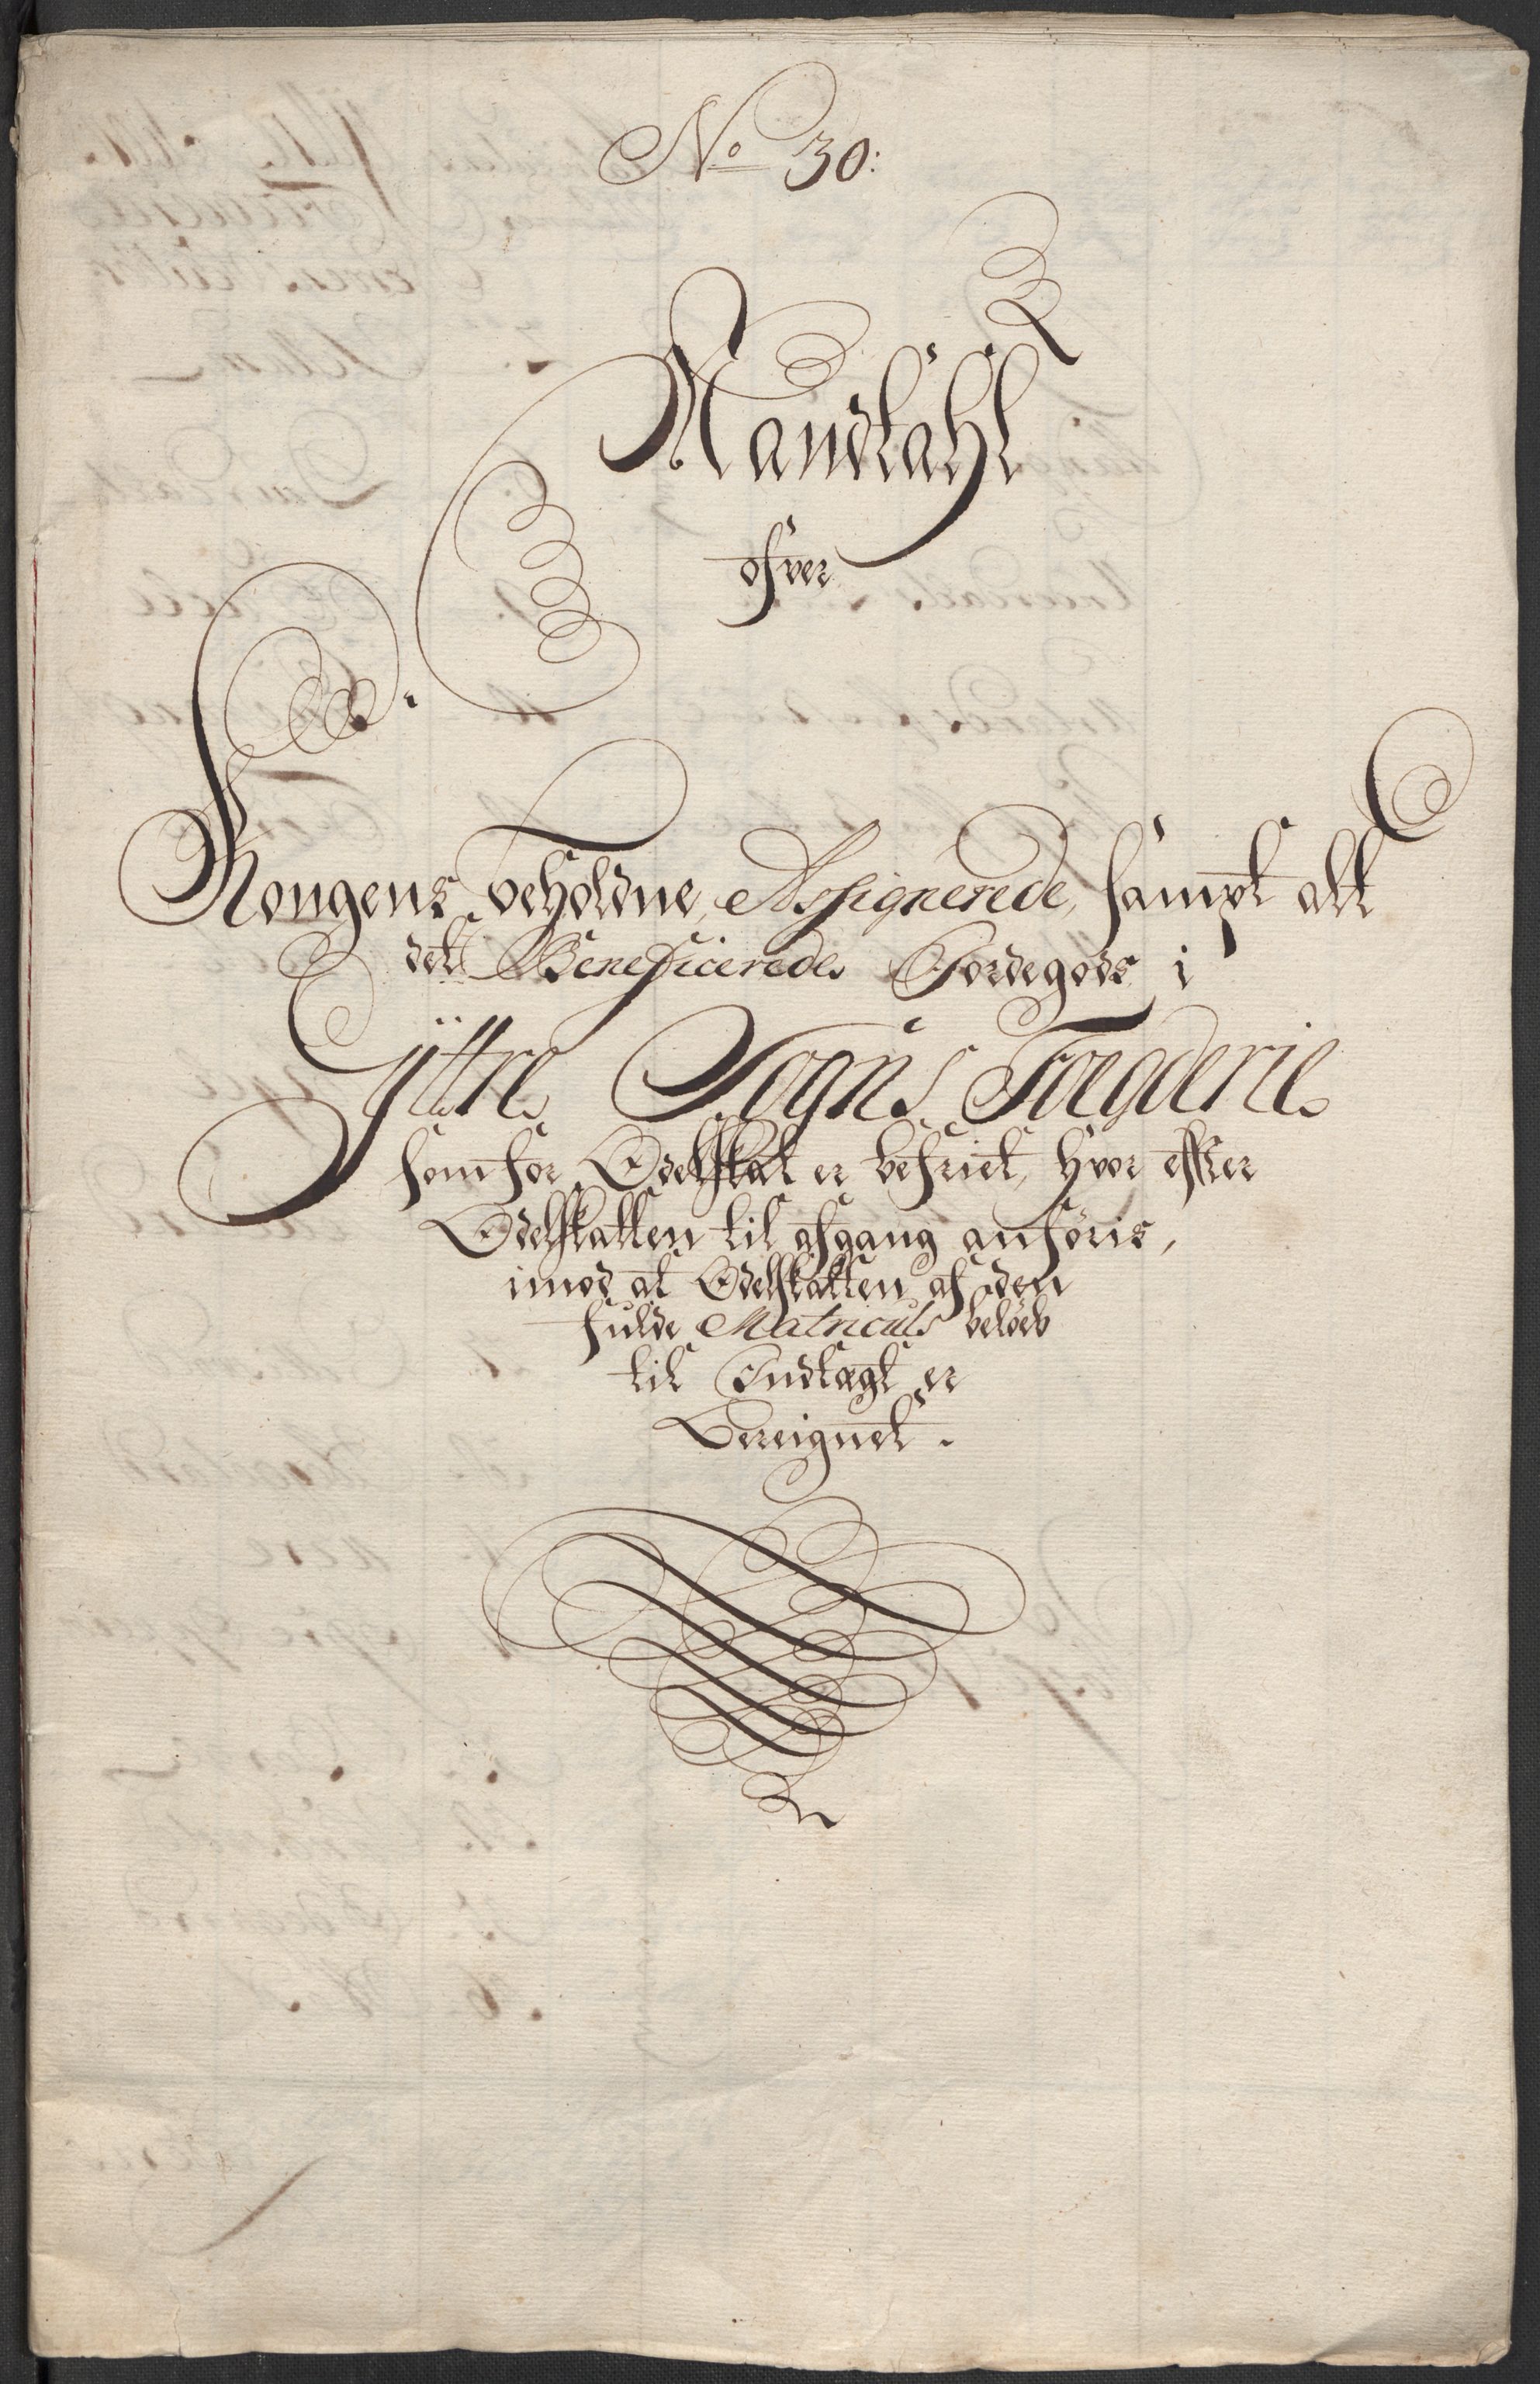 No 30:
Mandtahl
ofver
Kongens beholdne, Assignerede, sampt alt
det Beneficerede Jordegods i
Ÿttre Sogns Fogderie
som for Odelskat er befriet, hvor effter
Odelskatten til afgang anföris,
imod at Odelskatten af den
fulde Matriculs beløb
til Indtægt er
Bereignet.